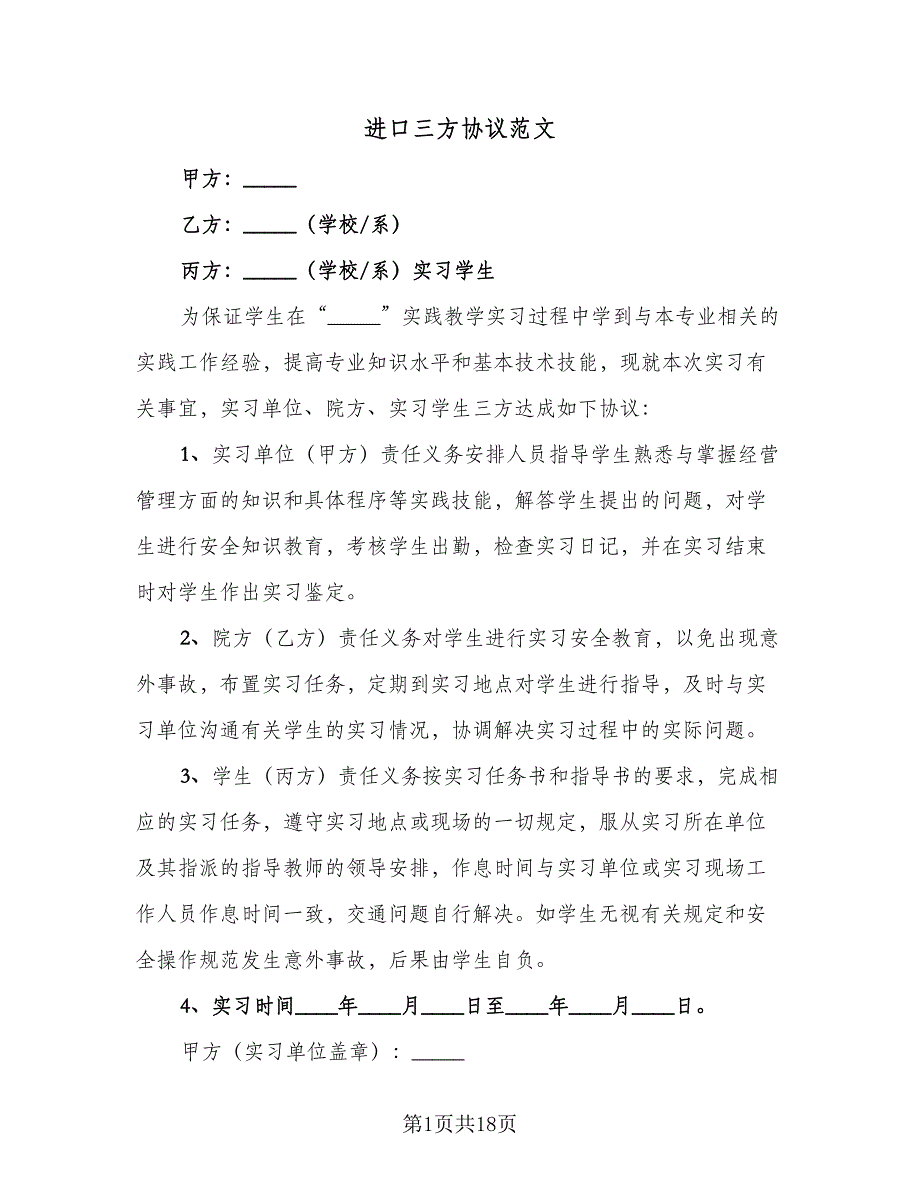 进口三方协议范文
甲方：_____
乙方：_____（学校/系）
丙方：_____（学校/系）实习学生
为保证学生在“_____”实践教学实习过程中学到与本专业相关的
实践工作经验，提高专业知识水平和基本技术技能，现就本次实习有
关事宜，实习单位、院方、实习学生三方达成如下协议：
1、实习单位（甲方）责任义务安排人员指导学生熟悉与掌握经营
管理方面的知识和具体程序等实践技能，解答学生提出的问题，对学
生进行安全知识教育，考核学生出勤，检查实习日记，并在实习结束
时对学生作出实习鉴定。
2、院方（乙方）责任义务对学生进行实习安全教育，以免出现意
外事故，布置实习任务，定期到实习地点对学生进行指导，及时与实
习单位沟通有关学生的实习情况，协调解决实习过程中的实际问题。
3、学生（丙方）责任义务按实习任务书和指导书的要求，完成相
应的实习任务，遵守实习地点或现场的一切规定，服从实习所在单位
及其指派的指导教师的领导安排，作息时间与实习单位或实习现场工
作人员作息时间一致，交通问题自行解决。如学生无视有关规定和安
全操作规范发生意外事故，后果由学生自负。
4、实习时间____年____月____日至____年____月____日。
甲方（实习单位盖章）：_____
第1页共18页